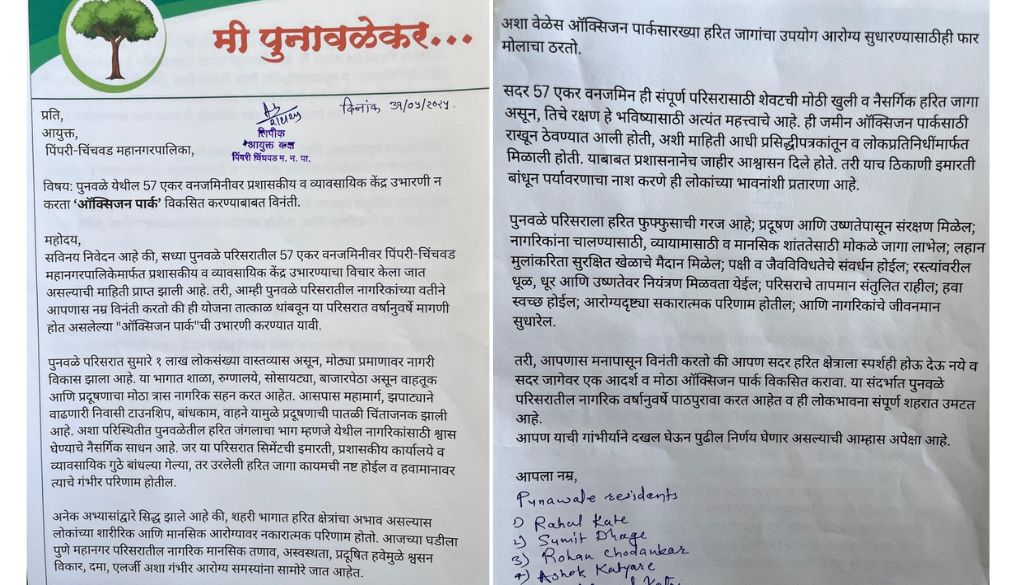 मी पुनावळेकर...
दिनांक ३१/०५/२०२५.
प्रति,
आयुक्त,
पिंपरी-चिंचवड महानगरपालिका,
लिपीक
आयुक्त कक्ष
पिंपरी चिंचवड म. न. पा.
विषय: पुनवळे येथील 57 एकर वनजमिनीवर प्रशासकीय व व्यावसायिक केंद्र उभारणी न
करता ‘ऑक्सिजन पार्क’ विकसित करण्याबाबत विनंती.
महोदय,
सविनय निवेदन आहे की, सध्या पुनवळे परिसरातील 57 एकर वनजमिनीवर पिंपरी-चिंचवड
महानगरपालिकेमार्फत प्रशासकीय व व्यावसायिक केंद्र उभारण्याचा विचार केला जात
असल्याची माहिती प्राप्त झाली आहे. तरी, आम्ही पुनवळे परिसरातील नागरिकांच्या वतीने
आपणास नम्र विनंती करतो की ही योजना तात्काळ थांबवून या परिसरात वर्षानुवर्षे मागणी
होत असलेल्या "ऑक्सिजन पार्क"ची उभारणी करण्यात यावी.
पुनवळे परिसरात सुमारे १ लाख लोकसंख्या वास्तव्यास असून, मोठ्या प्रमाणावर नागरी
विकास झाला आहे. या भागात शाळा, रुग्णालये, सोसायट्या, बाजारपेठा असून वाहतूक
आणि प्रदूषणाचा मोठा त्रास नागरिक सहन करत आहेत. आसपास महामार्ग, झपाट्याने
वाढणारी निवासी टाउनशिप, बांधकाम, वाहने यामुळे प्रदूषणाची पातळी चिंताजनक झाली
आहे. अशा परिस्थितीत पुनवळेतील हरित जंगलाचा भाग म्हणजे येथील नागरिकांसाठी श्वास
घेण्याचे नैसर्गिक साधन आहे. जर या परिसरात सिमेंटची इमारती, प्रशासकीय कार्यालये व
व्यावसायिक गुठे बांधल्या गेल्या, तर उरलेली हरित जागा कायमची नष्ट होईल व हवामानावर
त्याचे गंभीर परिणाम होतील.
अनेक अभ्यासांद्वारे सिद्ध झाले आहे की, शहरी भागात हरित क्षेत्रांचा अभाव असल्यास
लोकांच्या शारीरिक आणि मानसिक आरोग्यावर नकारात्मक परिणाम होतो. आजच्या घडीला
पुणे महानगर परिसरातील नागरिक मानसिक तणाव, अस्वस्थता, प्रदूषित हवेमुळे श्वसन
विकार, दमा, एलर्जी अशा गंभीर आरोग्य समस्यांना सामोरे जात आहेत.
अशा वेळेस ऑक्सिजन पार्कसारख्या हरित जागांचा उपयोग आरोग्य सुधारण्यासाठीही फार
मोलाचा ठरतो.
सदर 57 एकर वनजमिन ही संपूर्ण परिसरासाठी शेवटची मोठी खुली व नैसर्गिक हरित जागा
असून, तिचे रक्षण हे भविष्यासाठी अत्यंत महत्त्वाचे आहे. ही जमीन ऑक्सिजन पार्कसाठी
राखून ठेवण्यात आली होती, अशी माहिती आधी प्रसिद्धीपत्रकांतून व लोकप्रतिनिधींमार्फत
मिळाली होती. याबाबत प्रशासनानेच जाहीर आश्वासन दिले होते. तरी याच ठिकाणी इमारती
बांधून पर्यावरणाचा नाश करणे ही लोकांच्या भावनांशी प्रतारणा आहे.
पुनवळे परिसराला हरित फुफ्फुसाची गरज आहे; प्रदूषण आणि उष्णतेपासून संरक्षण मिळेल;
नागरिकांना चालण्यासाठी, व्यायामासाठी व मानसिक शांततेसाठी मोकळे जागा लाभेल; लहान
मुलांकरिता सुरक्षित खेळाचे मैदान मिळेल; पक्षी व जैवविविधतेचे संवर्धन होईल; रस्त्यांवरील
धूळ, धूर आणि उष्णतेवर नियंत्रण मिळवता येईल; परिसराचे तापमान संतुलित राहील; हवा
स्वच्छ होईल; आरोग्यदृष्ट्या सकारात्मक परिणाम होतील; आणि नागरिकांचे जीवनमान
सुधारेल.
तरी, आपणास मनापासून विनंती करतो की आपण सदर हरित क्षेत्राला स्पर्शही होऊ देऊ नये व
सदर जागेवर एक आदर्श व मोठा ऑक्सिजन पार्क विकसित करावा. या संदर्भात पुनवळे
परिसरातील नागरिक वर्षानुवर्षे पाठपुरावा करत आहेत व ही लोकभावना संपूर्ण शहरात उमटत
आहे.
आपण याची गांभीर्याने दखल घेऊन पुढील निर्णय घेणार असल्याची आम्हास अपेक्षा आहे.
आपला नम्र,
Punawale residents
1) Rahul Kate
2) Sumit Dhage
3) Rohan Chodankar
4) Ashok Katyare